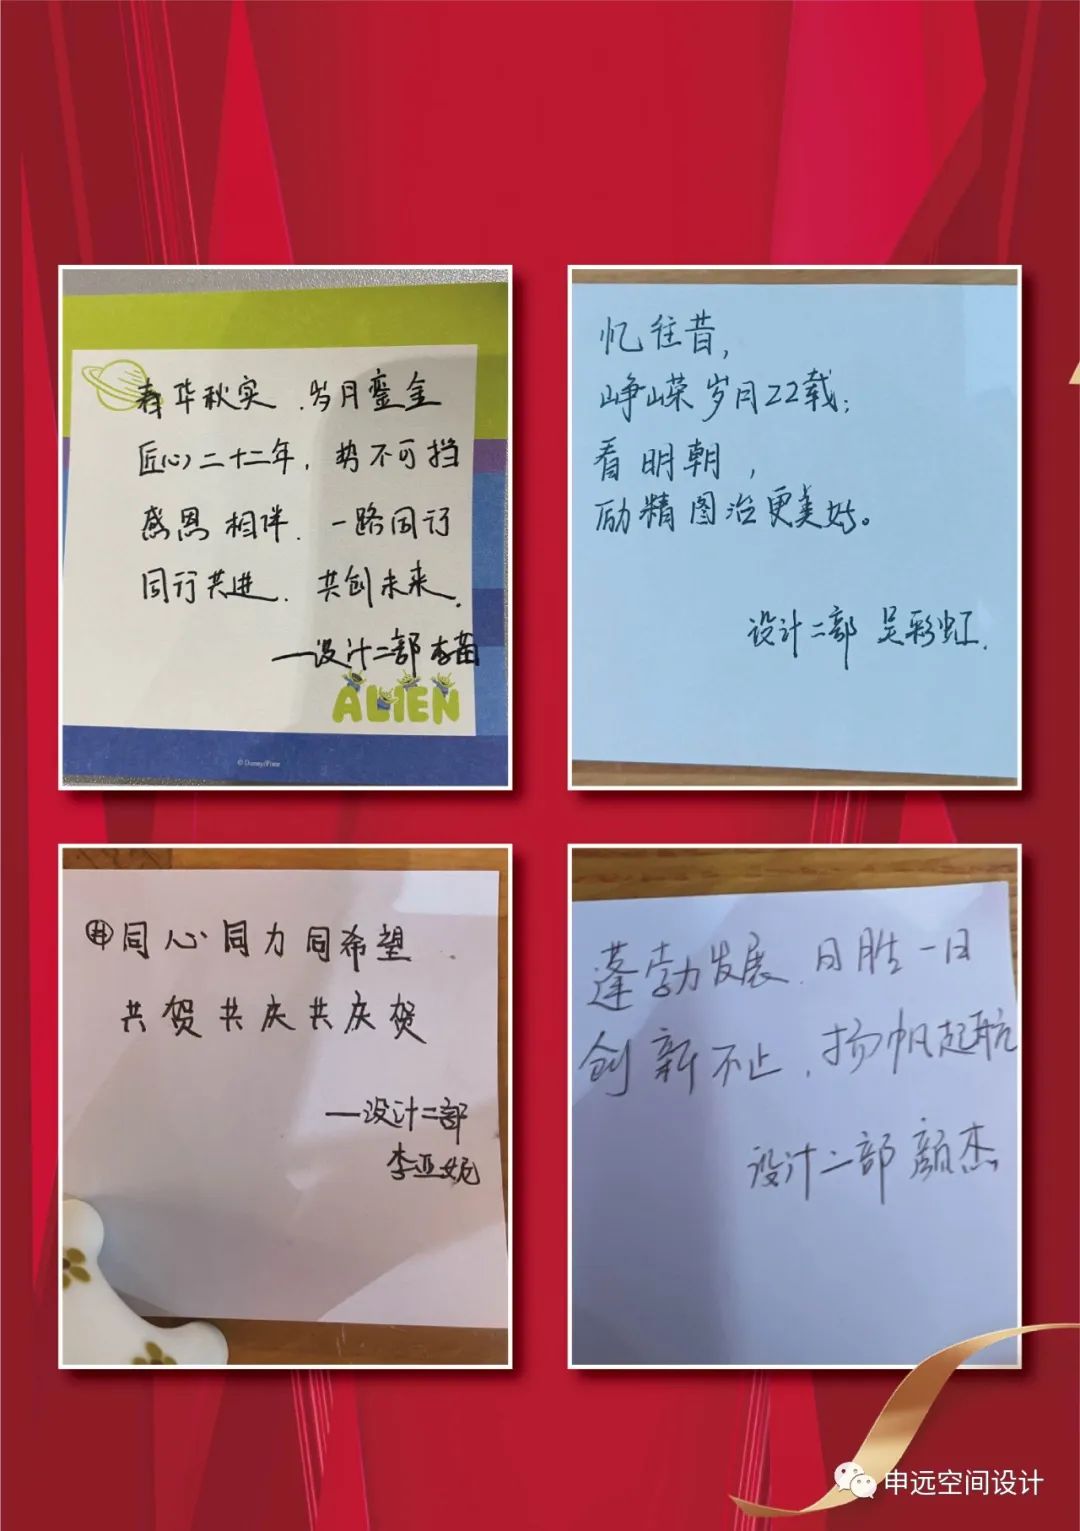 春华秋实，岁月鎏金
匠心二十二年，势不可挡
感恩相伴，一路同行
同行共进，共创未来。
—设计二部 李苗
ALIEN
© Disney/Pixar
忆往昔，
峥嵘岁月22载；
看明朝，
励精图治更美好。
设计二部 吴彩虹.
同心同力同希望
共贺共庆共庆贺
—设计二部
李亚妮
蓬勃发展，日胜一日
创新不止，扬帆起航
设计二部 颜杰
申远空间设计